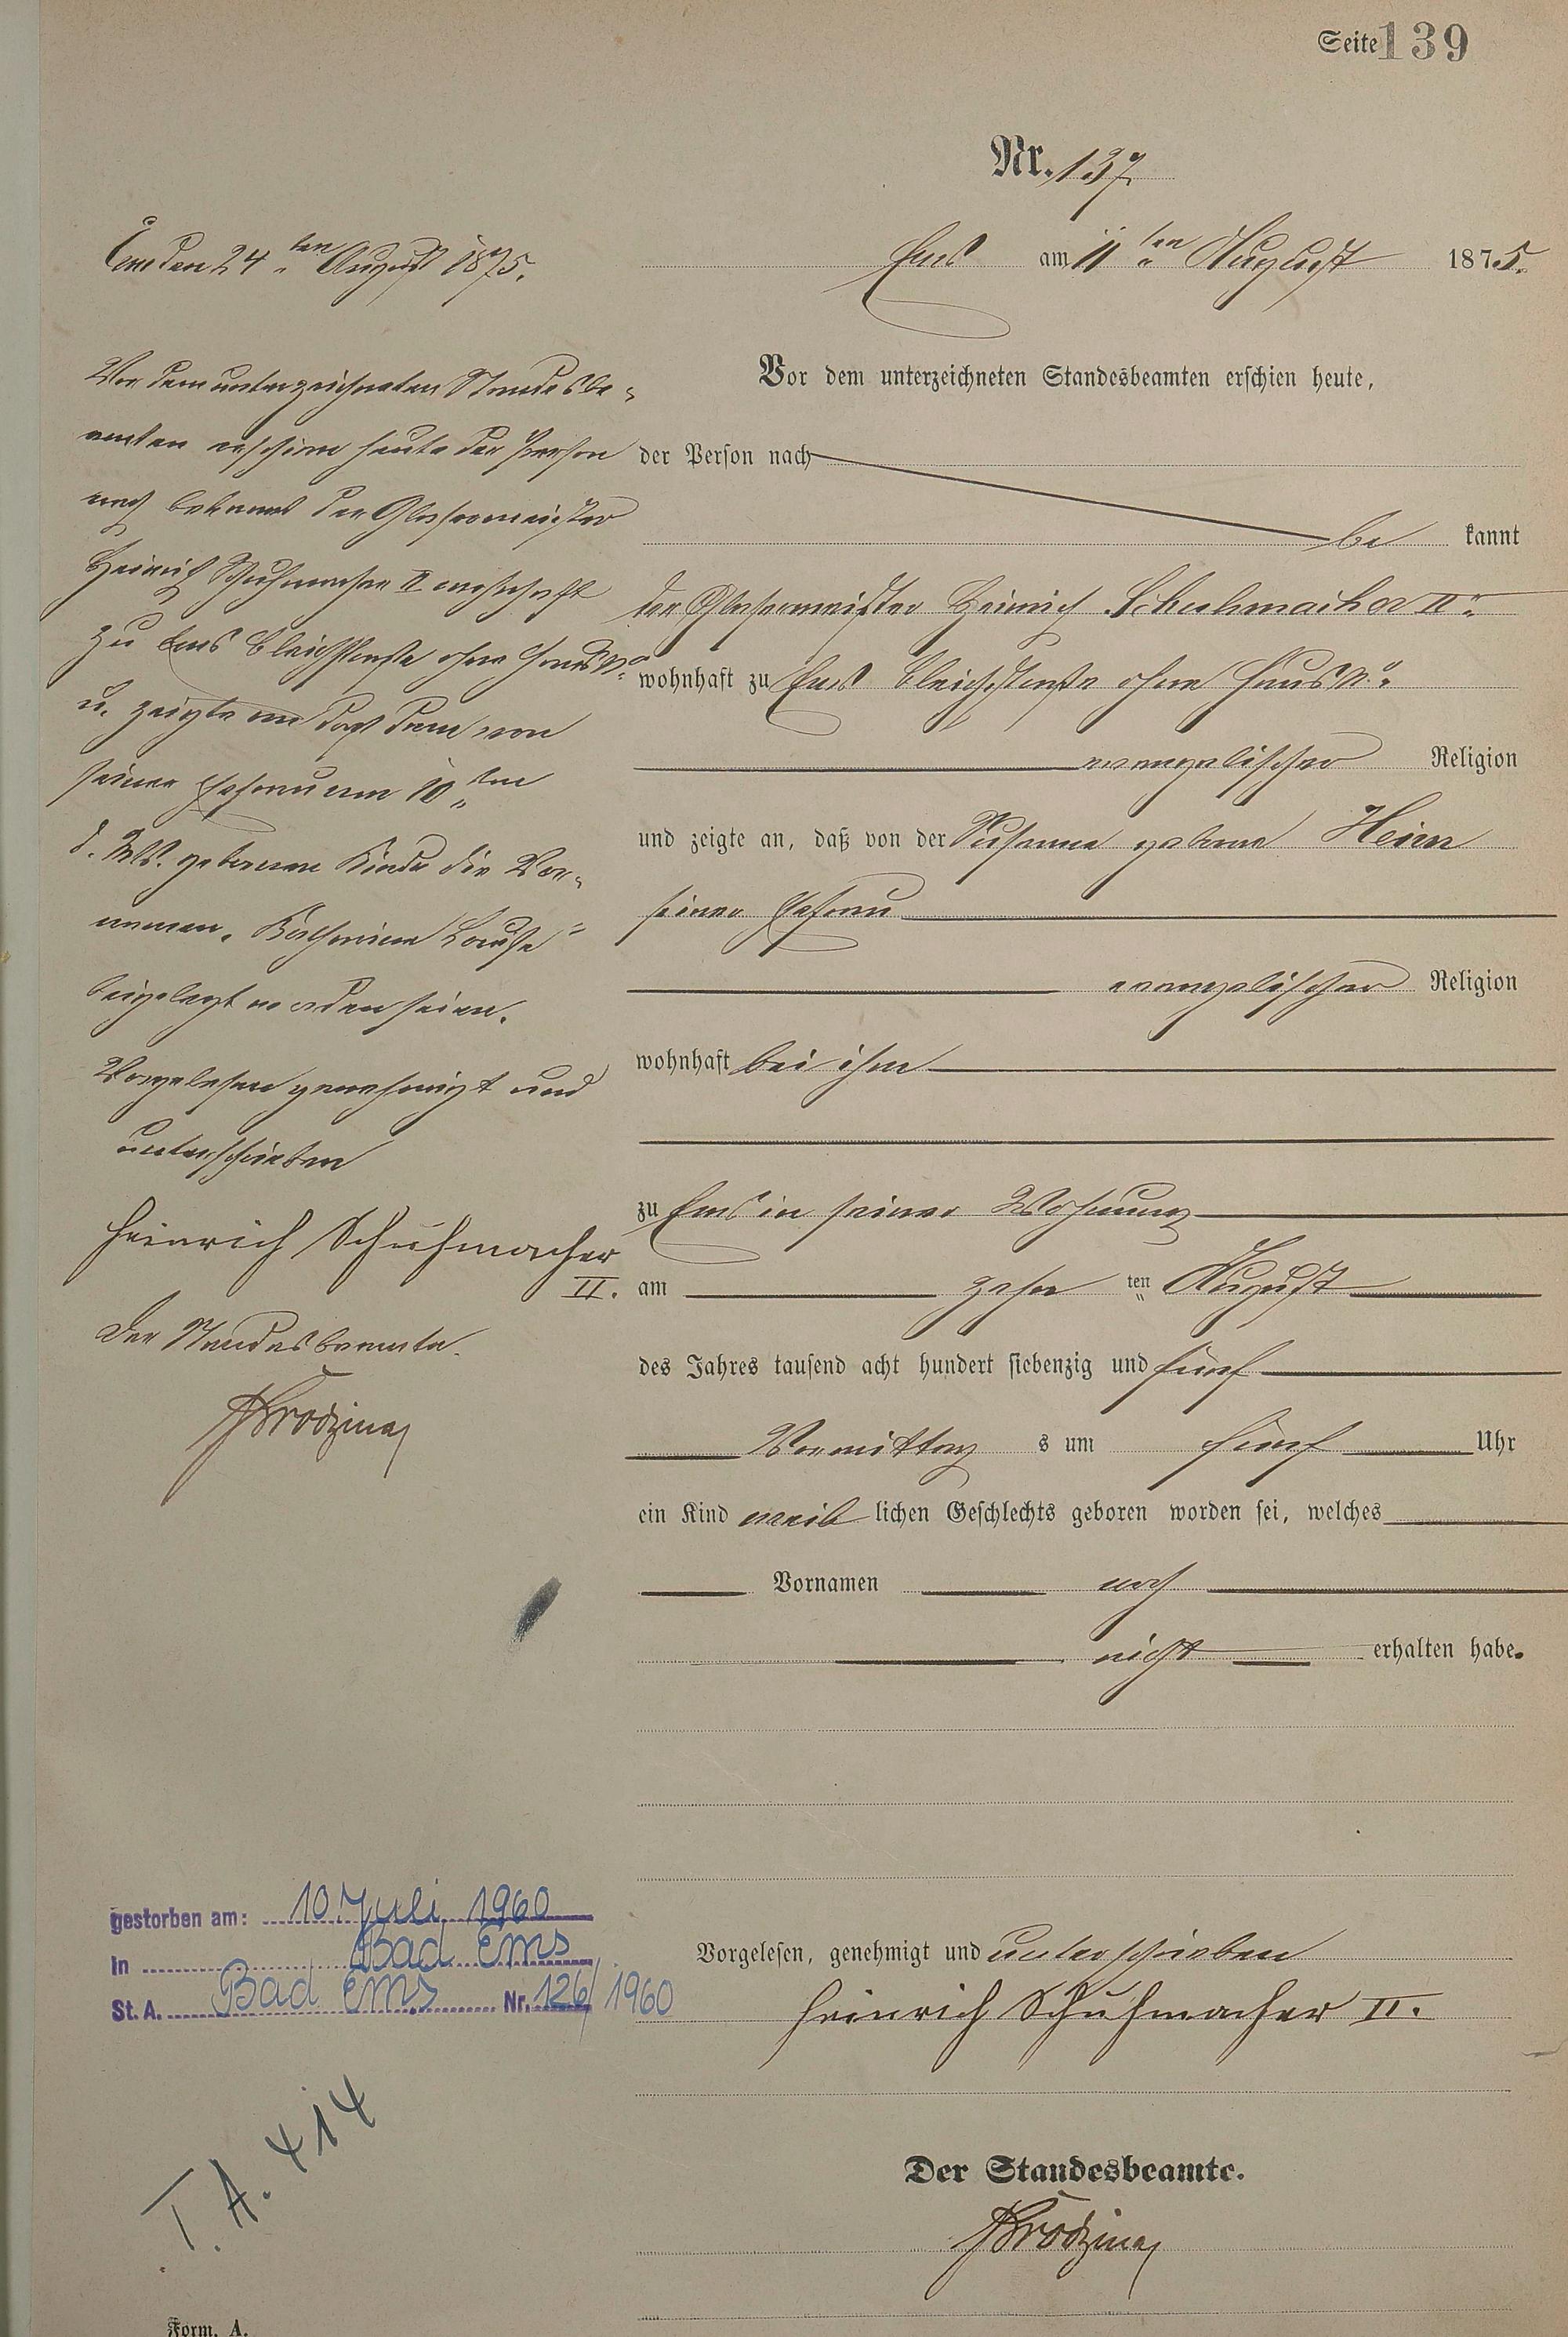 Seite 139
Nr. 137
Ems am 11ten August 1875.
Vor dem unterzeichneten Standesbeamten erschien heute,
der Person nach
be kannt
der Glasermeister Heinrich Schuhmacher II.
wohnhaft zu Ems Bleichstraße ohne Haus No.
evangelischer Religion
und zeigte an, daß von der Susanna geborne Heinz
seiner Ehefrau
evangelischer Religion
wohnhaft bei ihm
zu Ems in seiner Wohnung
am zehn ten August
des Jahres tausend acht hundert siebenzig und fünf
Vormittag s um fünf Uhr
ein Kind weib lichen Geschlechts geboren worden sei, welches
Vornamen noch
nicht erhalten habe.
Vorgelesen, genehmigt und unterschrieben
Heinrich Schuhmacher II.
Der Standesbeamte.
Ems den 24ten August 1875.
Vor dem unterzeichneten Standesbe-
amten erschien heute der Person
nach bekannt der Glasermeister
Heinrich Schuhmacher II wohnhaft
zu Ems Bleichstraße ohne Haus No.
u. zeigte an daß dem von
seiner Ehefrau am 10ten
d. Mts. geborenen Kinde die Vor-
namen „Katharina Louise“
beigelegt worden seien.
Vorgelesen genehmigt und
unterschrieben
Heinrich Schuhmacher
II.
Der Standesbeamte.
gestorben am: 10. Juli 1960
in Bad Ems
St. A. Bad Ems Nr. 126/1960
T. A. 414
Form. A.